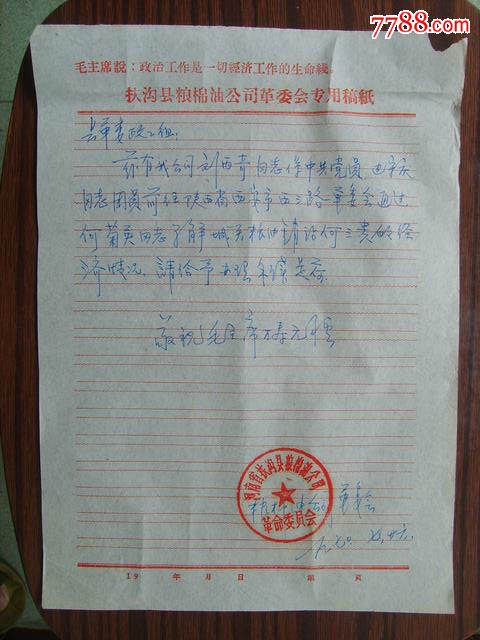 7788.com
毛主席說：政治工作是一切經济工作的生命线。
扶沟县粮棉油公司革委会专用稿紙
县革委政工组：
茲有我公司刘西奇同志作中共党员
同志团员前往陕西省西安市西三路革委会通过
何菊英同志了解城关粮油請话何三贵的经
济情况。請给予办理
敬祝毛主席万寿无疆
河南省扶沟县粮棉油公司
革命委员会
革委会
一九七〇
19 年 月 日 第 頁